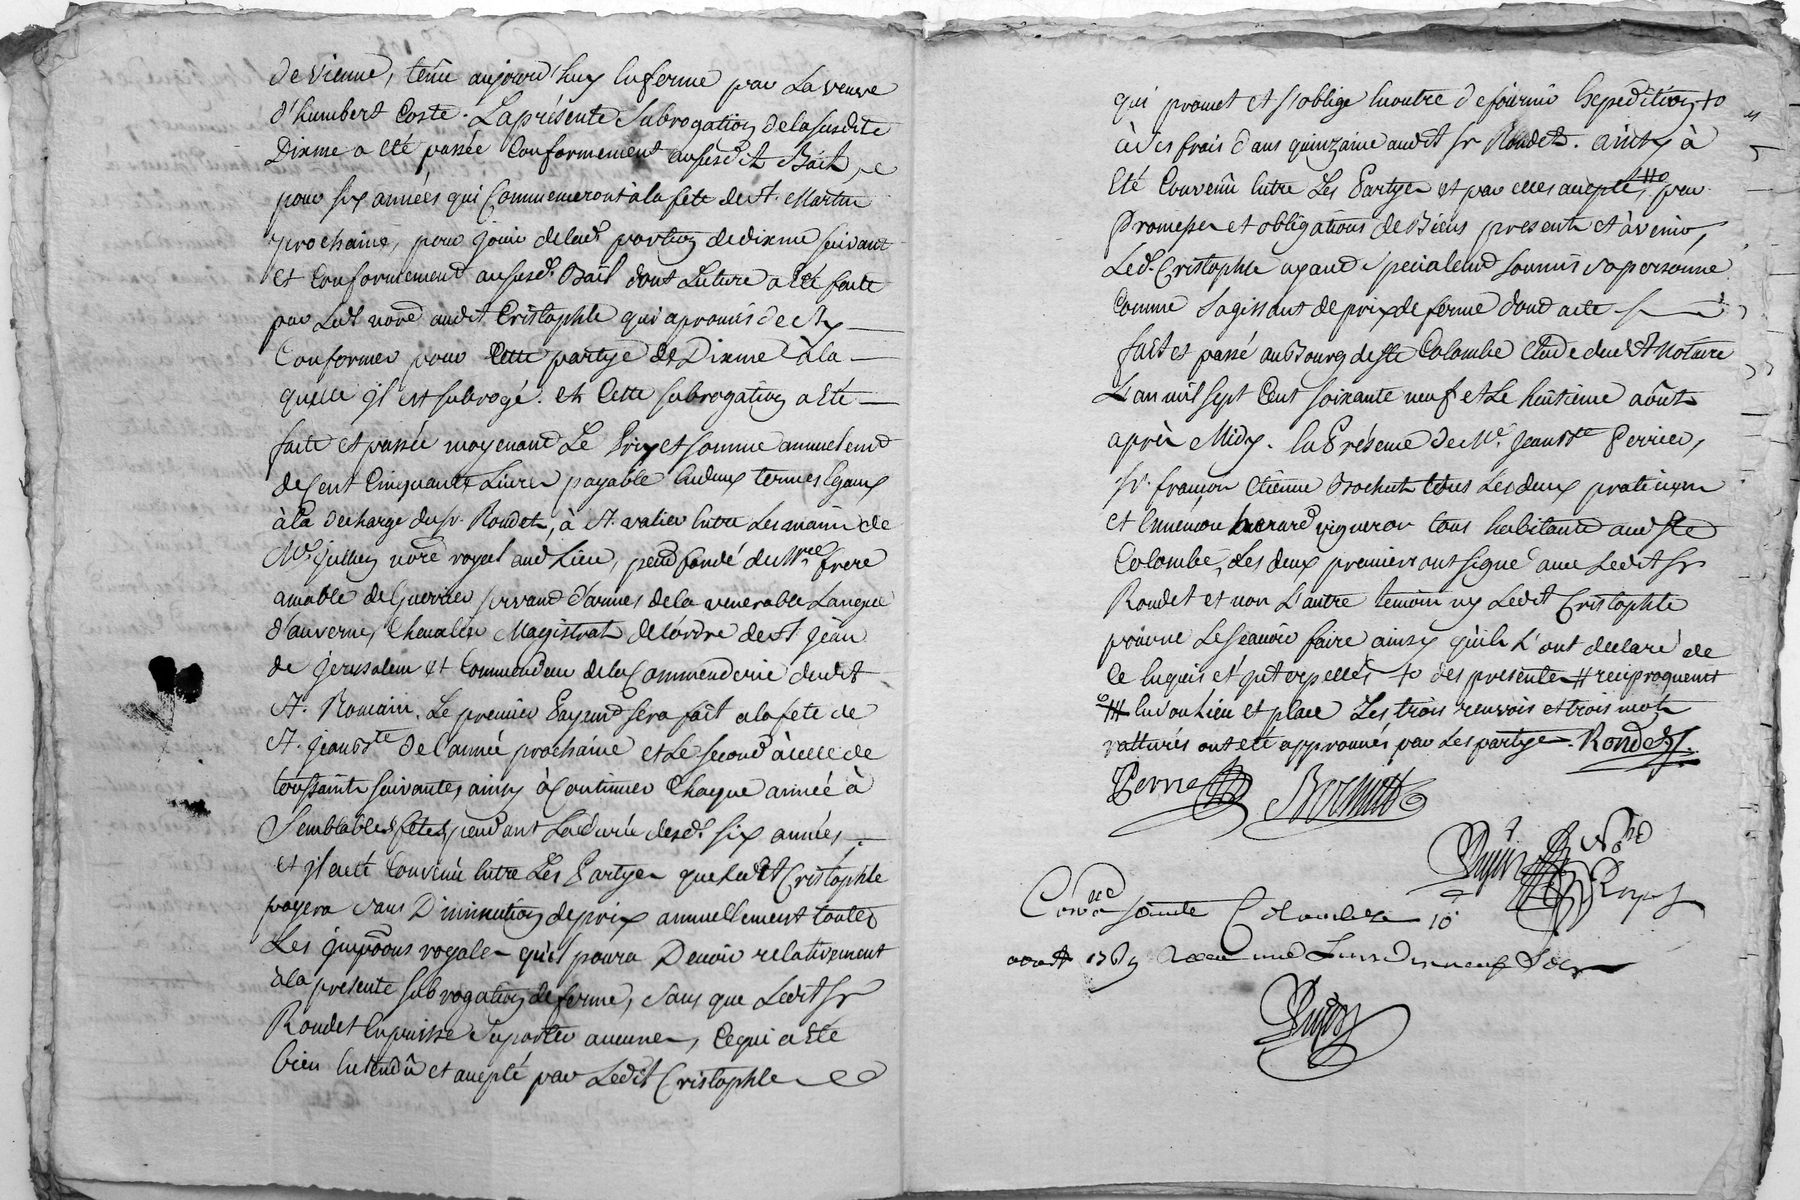 de vienne, tenu aujourd'huy en ferme par La veuve
d'humbert Coste. La présente Subrogation de la susdite
Dixme a eté passée Conformement au susdit Bail
pour six années qui Commenceront à la fete de St. Martin
prochaine, pour jouir de lad. portion de dixme suivant
et Conformement au susd. Bail dont Lecture a eté faite
par Led. nore. audit Cristophle qui a promis de s'y
Conformer pour Cette partye de Dixme à la
quelle jl est subrogé. et Cette subrogation a eté
faite et passée moyenand Le Prix et somme annuelemd
de Cent Cinquante Livres payable En deux termes Egaux
à la decharge du sr. Rondet, à St. valier Entre Les mains de
Me. jullien nore royal aud Lieu, fondé de frere
amable de Guerrier servand d'armes de la venerable Langue
d'auverne, Chevalier Magistrat de L'ordre de St. jean
de jerusalem et Commandeur de la Commanderie dudit
St. Romain. Le premier Payemd sera fait a la fete de
St. jean Bte de L'année prochaine et Le second à celle de
toussaint suivantes, ainsy à Continuer Chaque année à
Semblables fetes pendant La durée desd. six années.
et jl a eté Convenu Entre Les Partyes que Ledit Cristophle
payera sans Diminution de prix annuellement toutes
Les jmpoons royales qu'il poura Devoir relativement
à la presente subrogation de ferme, sans que Ledit sr
Rondet En puisse Suporter aucunes, Ce qui a eté
bien Entendû et accepté par Ledit Cristophle
qui promet et s'oblige En outre de fournir Expedition +o
à ses frais dans quinzaine audit sr Rondet. ainsy à
Eté Convenu Entre Les Partyes et par elles accepté, # par
Promesses et obligations de Biens presents et à venir,
Led. Cristophle ayand specialemd soumis sa personne
Comme s'agissant de prix de ferme dond acte
fait et passé au Bourg de Ste Colombe Etude dudit Notaire
L'an mil sept Cent soixante neuf et Le huitieme août
après Midy. En Présence de Me. jean Bte Perrier,
sr. françois Etienne Bochut tous Les deux praticiens
et vigneron tous habitants aud Ste
Colombe, Les deux premiers ont signé avec Ledit sr
Rondet et non L'autre temoin ny Ledit Cristophle
pour ne Le scavoir faire ainsy qu'ils L'ont declaré de
Ce Enquis et +o des presentes # reciproquemt
# En son Lieu et place Les trois renvois et trois mots
ratturés ont eté approuvés par Les partyes. Rondet.
Perrier Bochutt
Conlé a sainte Colombe 10
aout 1769 Recu une Livre Dix neuf Sols